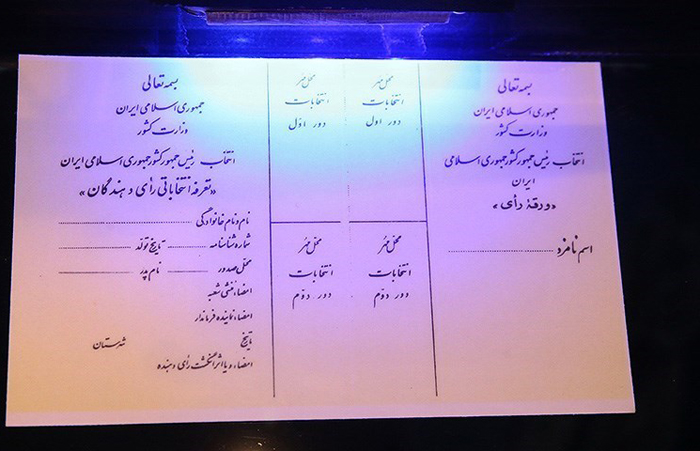 بسمه تعالی
جمهوری اسلامی ایران
وزارت کشور
انتخاب رئیس جمهور کشور جمهوری اسلامی
ایران
«ورقهٔ رأی»
اسم نامزد
محل مهر
انتخابات
دور اول
محل مهر
انتخابات
دور اول
محل مهر
انتخابات
دور دوّم
محل مهر
انتخابات
دور دوّم
بسمه تعالی
جمهوری اسلامی ایران
وزارت کشور
انتخاب رئیس جمهور کشور جمهوری اسلامی ایران
«تعرفه انتخاباتی رأی دهندگان»
نام و نام خانوادگی
شماره شناسنامه تاریخ تولد
محل صدور نام پدر
امضاء منشی شعبه
امضاء نماینده فرماندار
تاریخ شهرستان
امضاء و یا اثر انگشت رأی دهنده